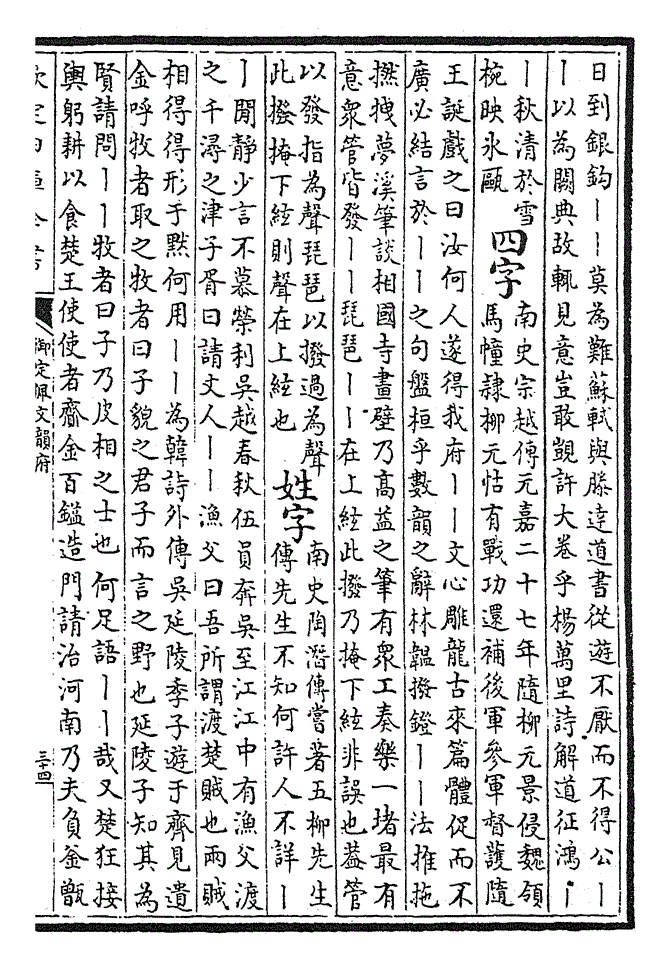 日到銀鈎丨丨莫為難蘇軾與滕達道書從遊不厭而不得公丨
丨以為闕典故輒見意豈敢覬許大卷乎楊萬里詩解道征鴻丨
丨秋清於雪
椀映氷甌
四字
南史宗越傳元嘉二十七年隨柳元景侵魏領
馬幢隷柳元怙有戰功還補後軍參軍督護隨
王誕戲之曰汝何人遂得我府丨丨文心雕龍古來篇體促而不
廣必結言於丨丨之句盤桓乎數韻之辭林韞撥鐙丨丨法推拖
撚拽夢溪筆談相國寺畫壁乃高益之筆有衆工奏樂一堵最有
意衆管皆發丨丨琵琶丨丨在上絃此撥乃掩下絃非誤也葢管
以發指為聲琵琶以撥過為聲
此撥掩下絃則聲在上絃也
姓字
南史陶潛傳嘗著五柳先生
傳先生不知何許人不詳丨
丨閒靜少言不慕榮利吳越春秋伍員奔吳至江江中有漁父渡
之千潯之津子胥曰請丈人丨丨漁父曰吾所謂渡楚賊也兩賊
相得得形于黙何用丨丨為韓詩外傳吳延陵季子遊于齊見遺
金呼牧者取之牧者曰子貌之君子而言之野也延陵子知其為
賢請問丨丨牧者曰子乃皮相之士也何足語丨丨哉又楚狂接
輿躬耕以食楚王使使者齎金百鎰造門請治河南乃夫負釜甑
欽定四庫全書
御定佩文韻府
三十四